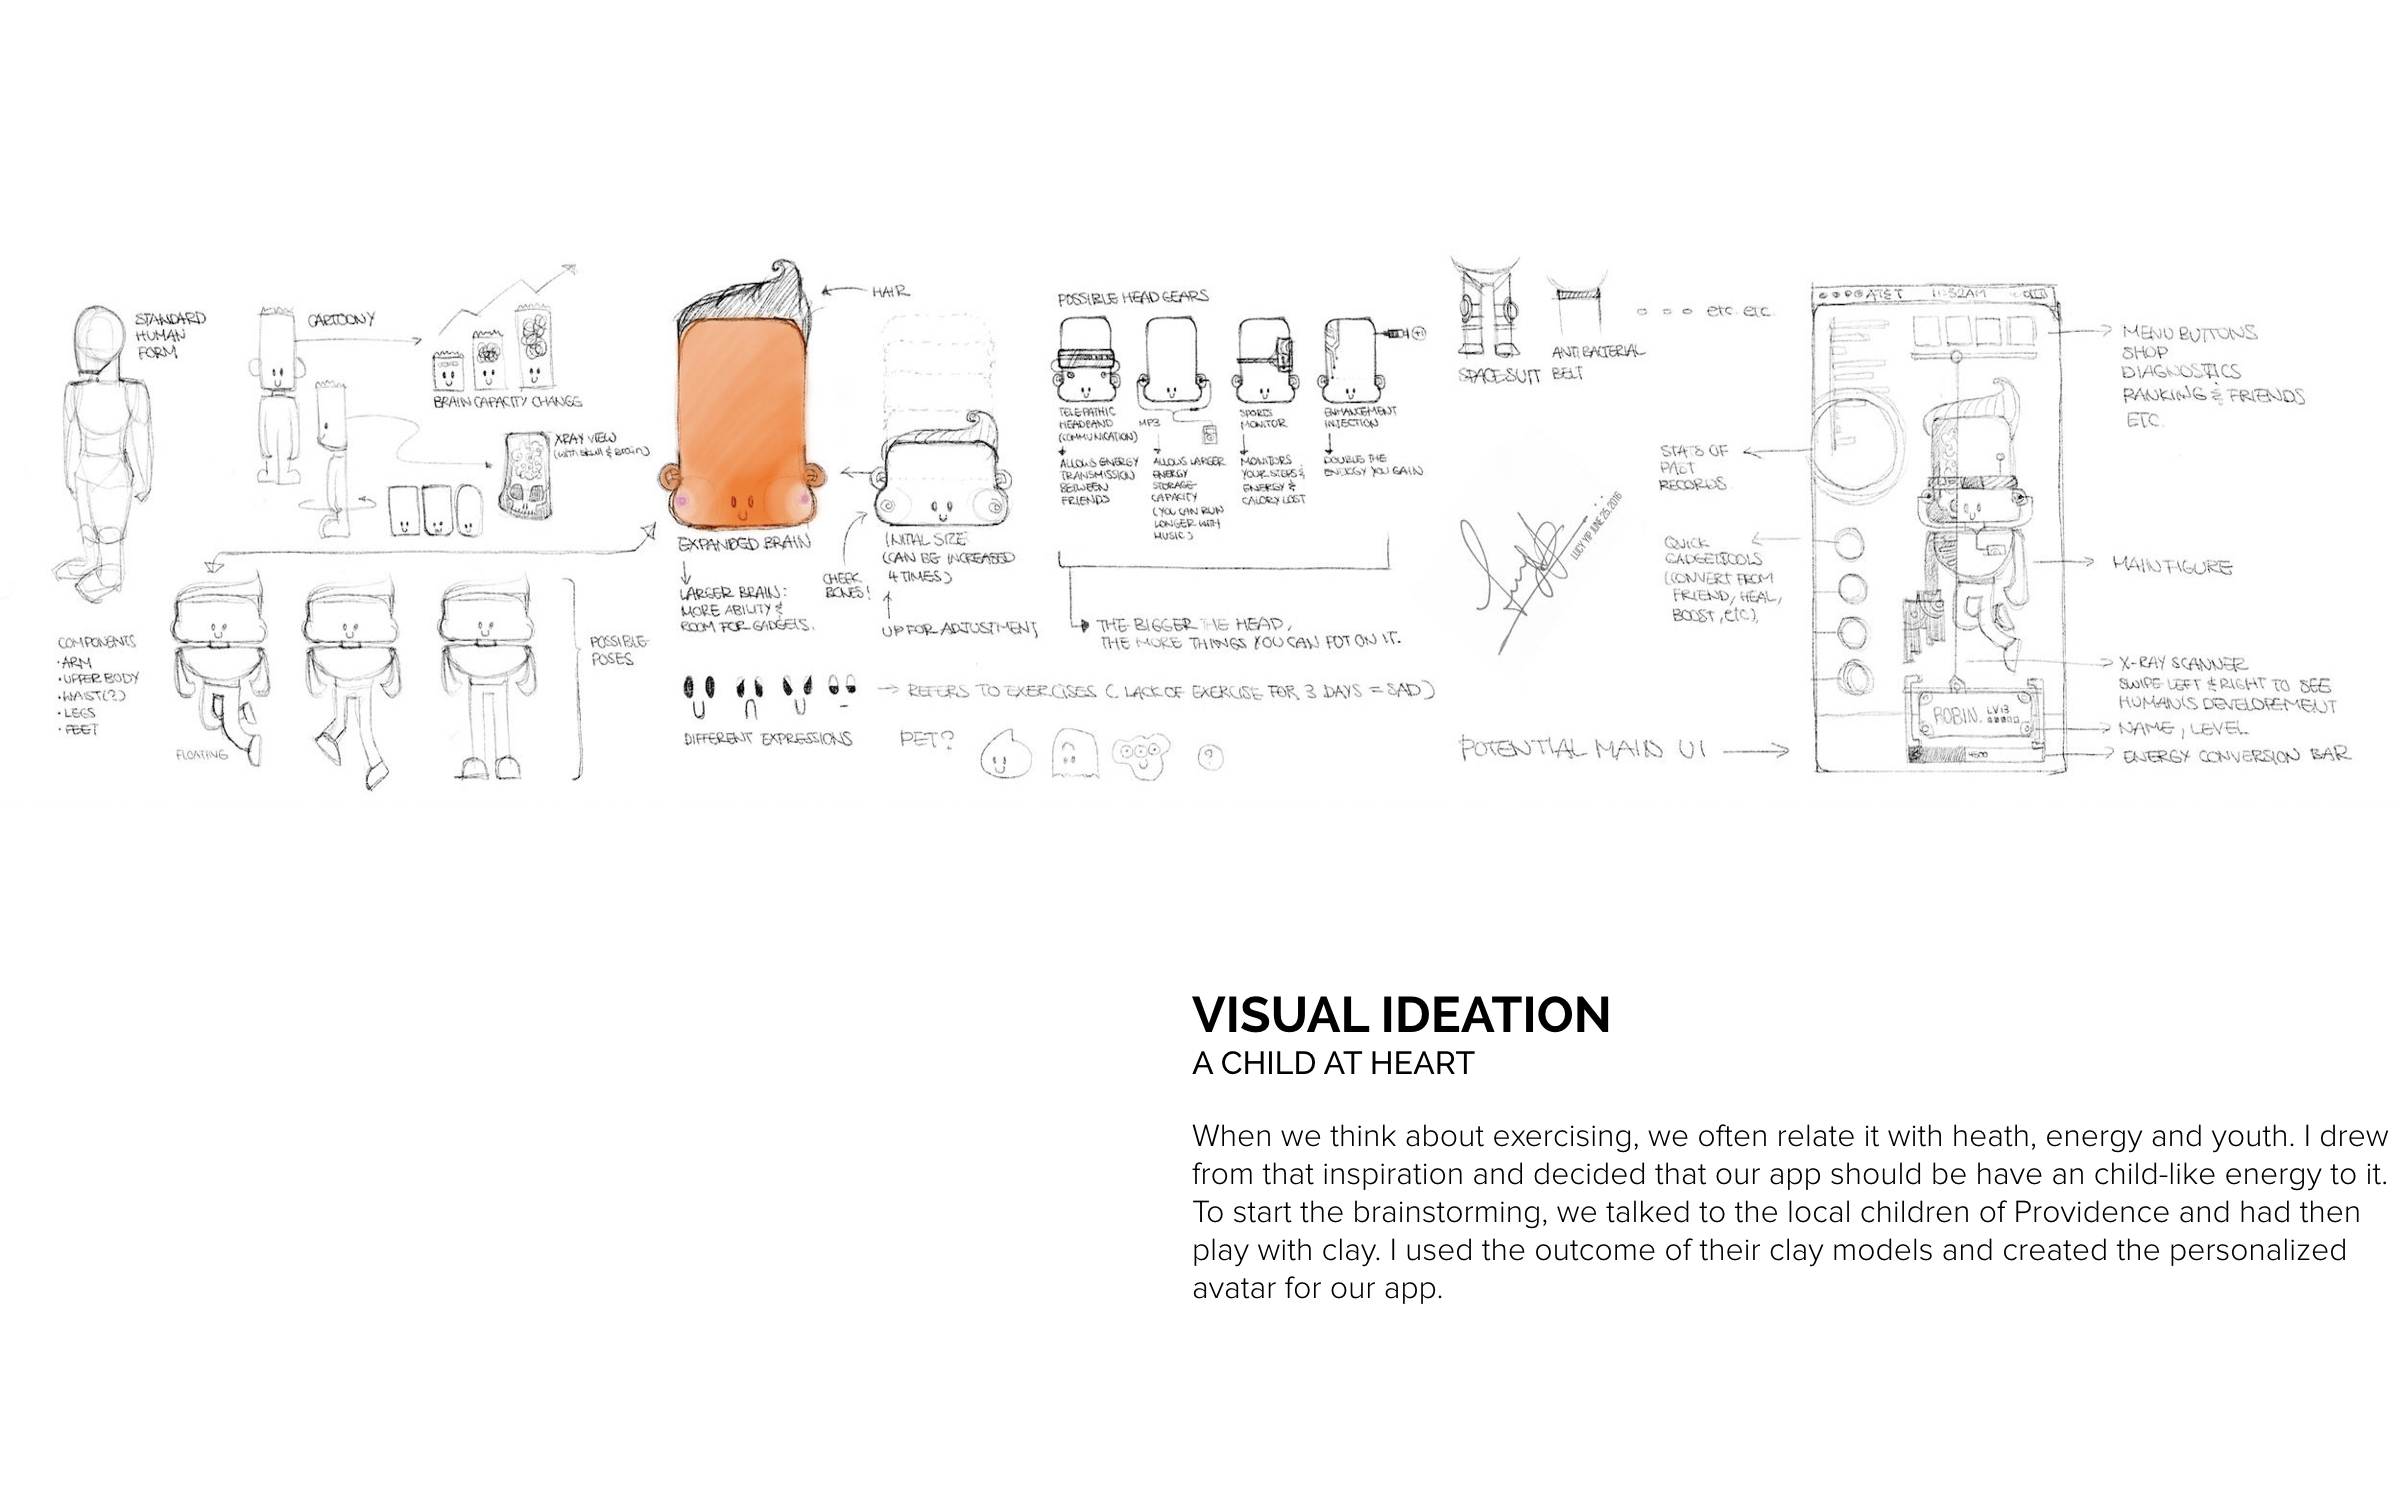 STANDARD
HUMAN
FORM
CARTOONY
BRAIN CAPACITY CHANGE
XRAY VIEW
(with skull & brain)
COMPONENTS
• ARM
• UPPER BODY
• WAIST(?)
• LEGS
• FEET
FLOATING
POSSIBLE
POSES
HAIR
EXPANDED BRAIN
LARGER BRAIN:
MORE ABILITY &
ROOM FOR GADGETS.
CHEEK
BONES!
INITIAL SIZE
(CAN BE INCREASED
4 TIMES)
UP FOR ADJUSTMENT
DIFFERENT EXPRESSIONS
REFERS TO EXERCISES (LACK OF EXERCISE FOR 3 DAYS = SAD)
PET?
?
POSSIBLE HEAD GEARS
TELEPATHIC
HEADBAND
(COMMUNICATION)
ALLOWS ENERGY
TRANSMISSION
BETWEEN
FRIENDS
MP3
ALLOWS LARGER
ENERGY
STORAGE
CAPACITY
(YOU CAN RUN
LONGER WITH
MUSIC)
SPORTS
MONITOR
MONITORS
YOUR STEPS &
ENERGY &
CALORY LOST
ENHANCEMENT
INJECTION
DOUBLE THE
ENERGY YOU GAIN
THE BIGGER THE HEAD,
THE MORE THINGS YOU CAN POT ON IT.
SPACE-SUIT
ANTIBACTERIAL
BELT
etc. etc.
LUCY YIP JUNE 25. 2016
POTENTIAL MAIN UI
STATS OF
PAST
RECORDS
QUICK
GADGET TOOLS
(CONVERT FROM
FRIEND, HEAL,
BOOST, etc),
AT&T 10:32AM
ROBIN. LV13
MENU BUTTONS
SHOP
DIAGNOSTICS
RANKING & FRIENDS
ETC.
MAIN FIGURE
X-RAY SCANNER
SWIPE LEFT & RIGHT TO SEE
HUMAN'S DEVELOPEMENT
NAME, LEVEL
ENERGY CONVERSION BAR
VISUAL IDEATION
A CHILD AT HEART
When we think about exercising, we often relate it with heath, energy and youth. I drew
from that inspiration and decided that our app should be have an child-like energy to it.
To start the brainstorming, we talked to the local children of Providence and had then
play with clay. I used the outcome of their clay models and created the personalized
avatar for our app.